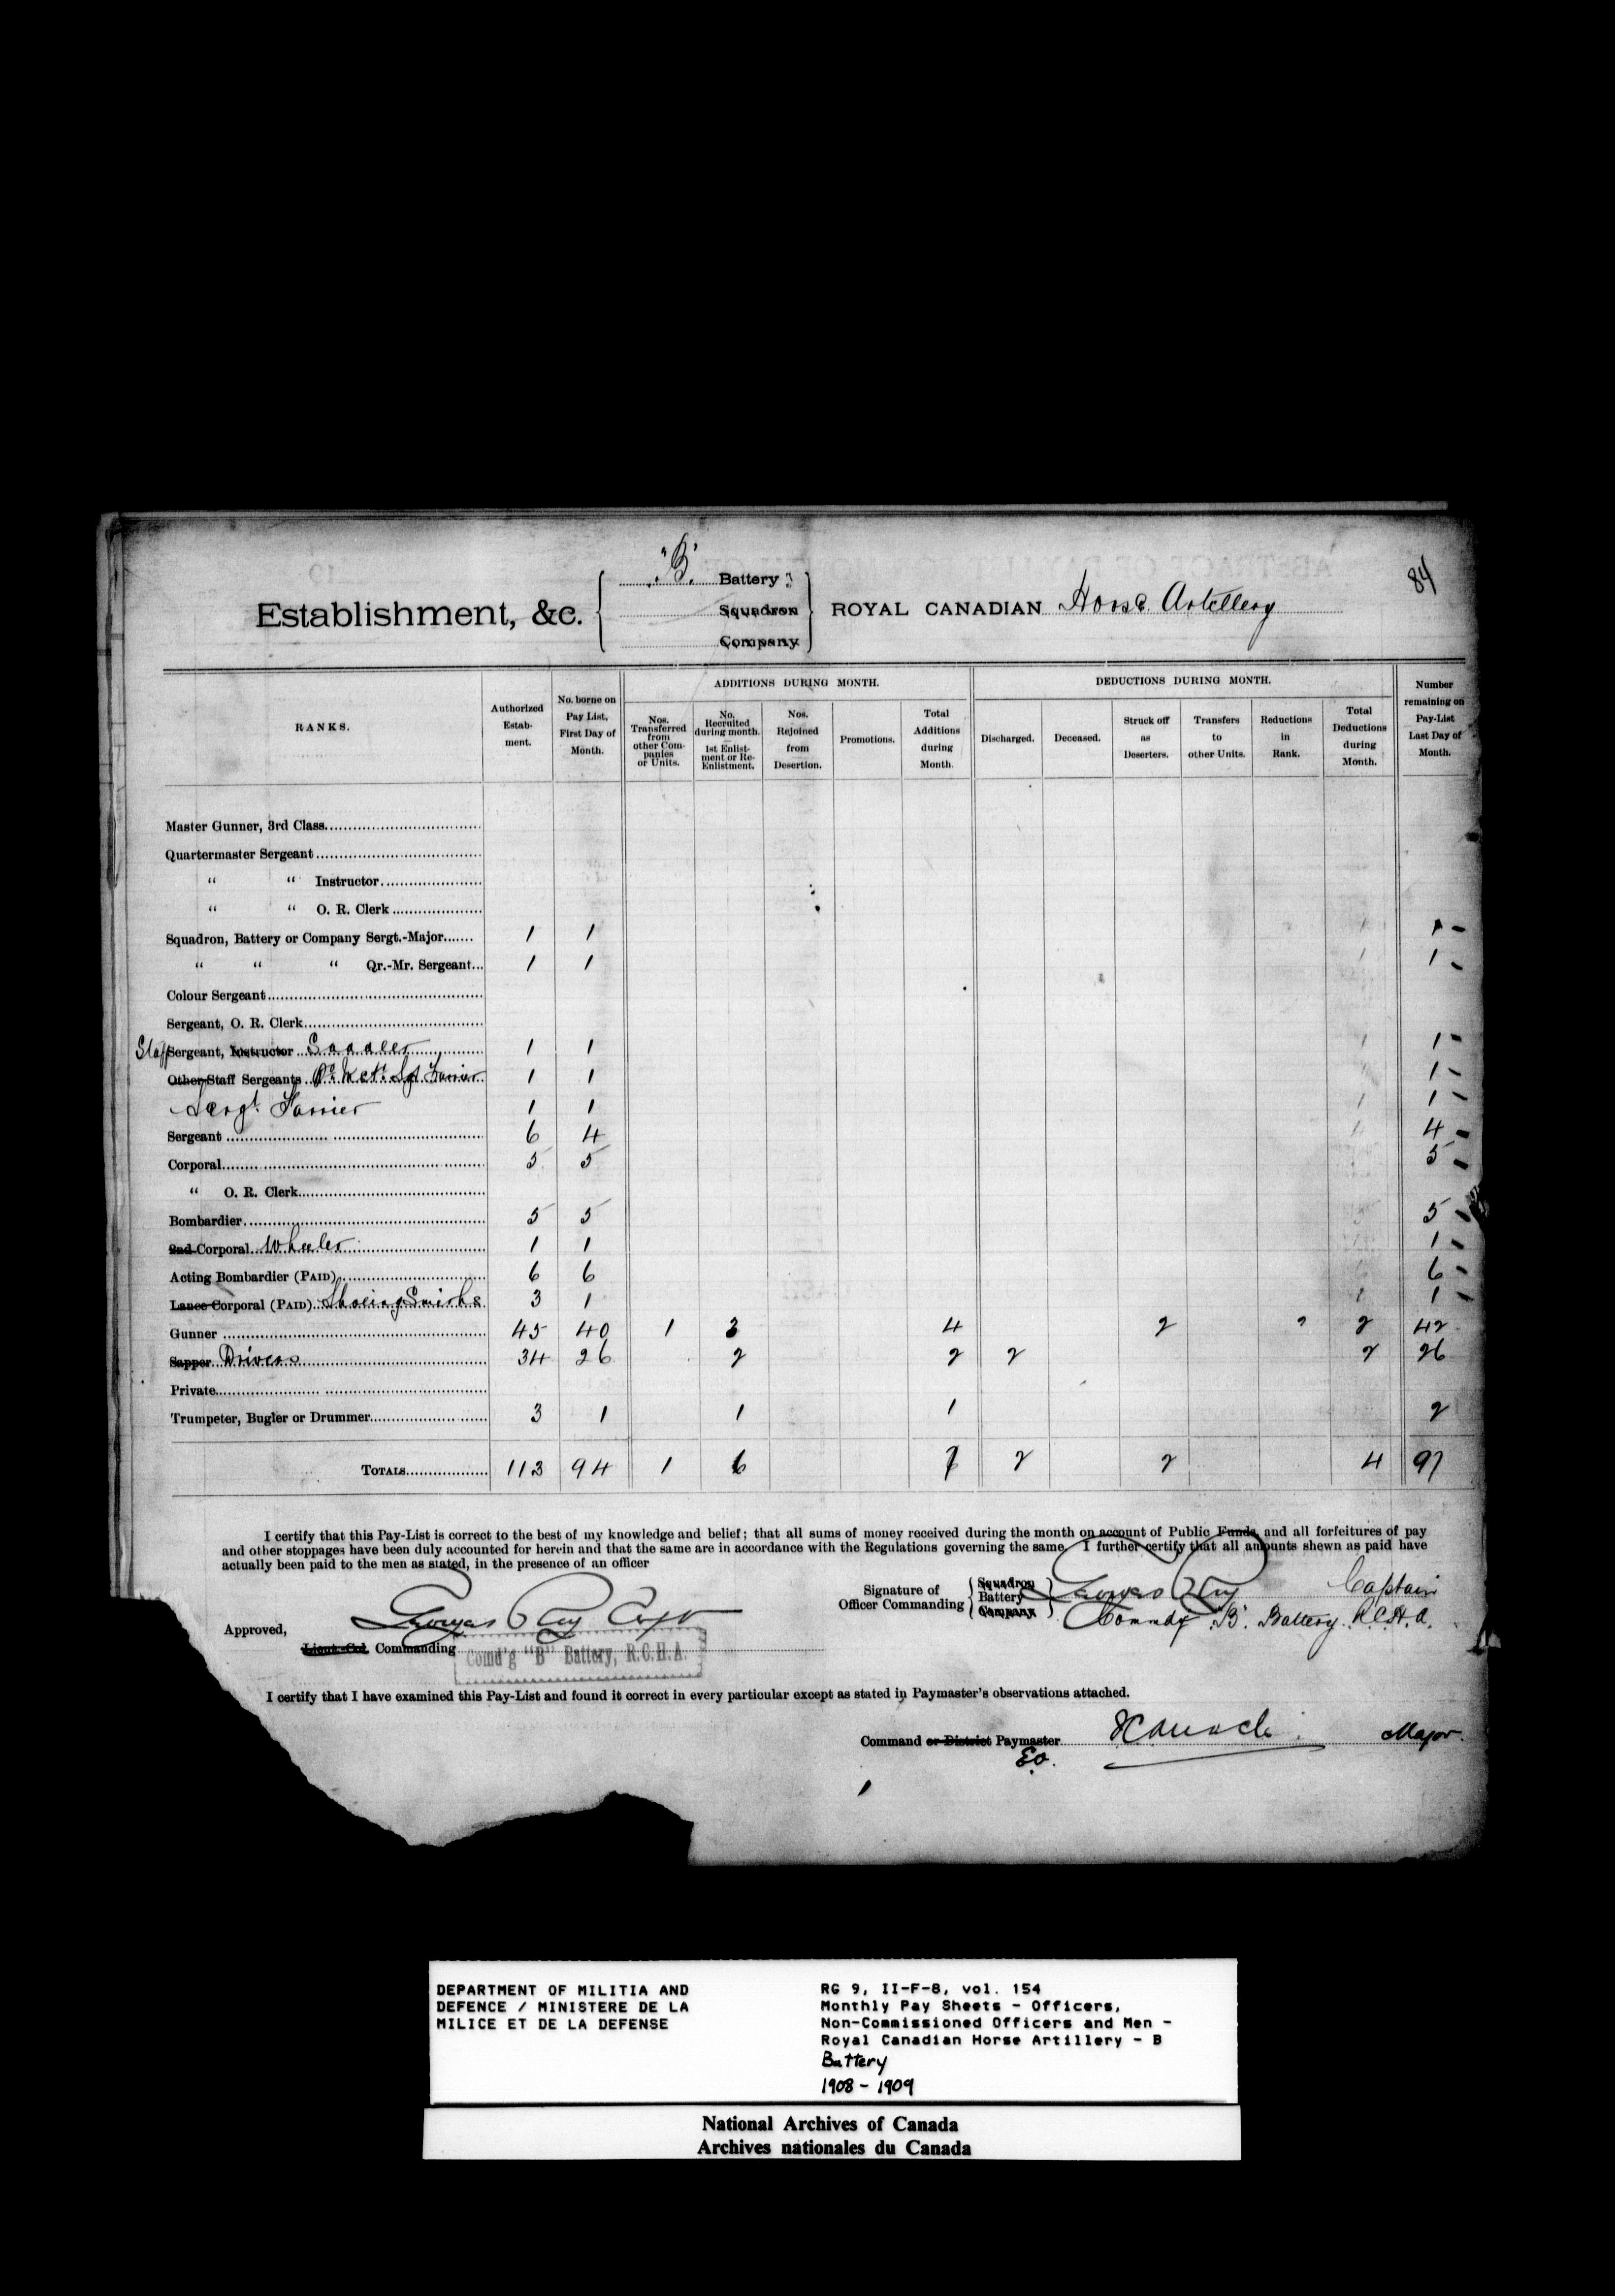 84
"B" Battery
Establishment, &c. Squadron ROYAL CANADIAN Horse Artillery
Company
RANKS. Authorized Estab- ment. No. borne on Pay List, First Day of Month. ADDITIONS DURING MONTH. Nos. Transferred from other Com- panies or Units. No. Recruited during month. 1st Enlist- ment or Re- Enlistment. Nos. Rejoined from Desertion. Promotions. Total Additions during Month. DEDUCTIONS DURING MONTH. Discharged. Deceased. Struck off as Deserters. Transfers to other Units. Reductions in Rank. Total Deductions during Month. Number remaining on Pay-List Last Day of Month.
Master Gunner, 3rd Class
Quartermaster Sergeant
" " Instructor
" " O. R. Clerk
Squadron, Battery or Company Sergt.-Major 1 1 1
" " " Qr.-Mr. Sergeant 1 1 1
Colour Sergeant
Sergeant, O. R. Clerk
Staff Sergeant, Instructor Saddler 1 1 1
Other Staff Sergeants Farrier 1 1 1
Sergt Farrier 1 1 1
Sergeant 6 4 4
Corporal 5 5 5
" O. R. Clerk
Bombardier 5 5 5
2nd Corporal Wheeler 1 1 1
Acting Bombardier (PAID) 6 6 6
Lance Corporal (PAID) Shoeing Smiths 3 1 1
Gunner 45 40 1 3 4 2 2 42
Sapper Drivers 34 26 2 2 2 2 26
Private
Trumpeter, Bugler or Drummer 3 1 1 1 2
TOTALS 113 94 1 6 7 2 2 4 97
I certify that this Pay-List is correct to the best of my knowledge and belief; that all sums of money received during the month on account of Public Funds, and all forfeitures of pay
and other stoppages have been duly accounted for herein and that the same are in accordance with the Regulations governing the same. I further certify that all amounts shewn as paid have
actually been paid to the men as stated, in the presence of an officer
Signature of Officer Commanding Squadron Battery Company Captain
Commdg "B" Battery R.C.H.A.
Approved,
Lieut.-Col. Commanding
Comd'g "B" Battery, R.C.H.A.
I certify that I have examined this Pay-List and found it correct in every particular except as stated in Paymaster's observations attached.
Command or District Paymaster Major
EO.
DEPARTMENT OF MILITIA AND
DEFENCE / MINISTERE DE LA
MILICE ET DE LA DEFENSE
RG 9, II-F-8, vol. 154
Monthly Pay Sheets - Officers,
Non-Commissioned Officers and Men -
Royal Canadian Horse Artillery - B
Battery
1908 - 1909
National Archives of Canada
Archives nationales du Canada